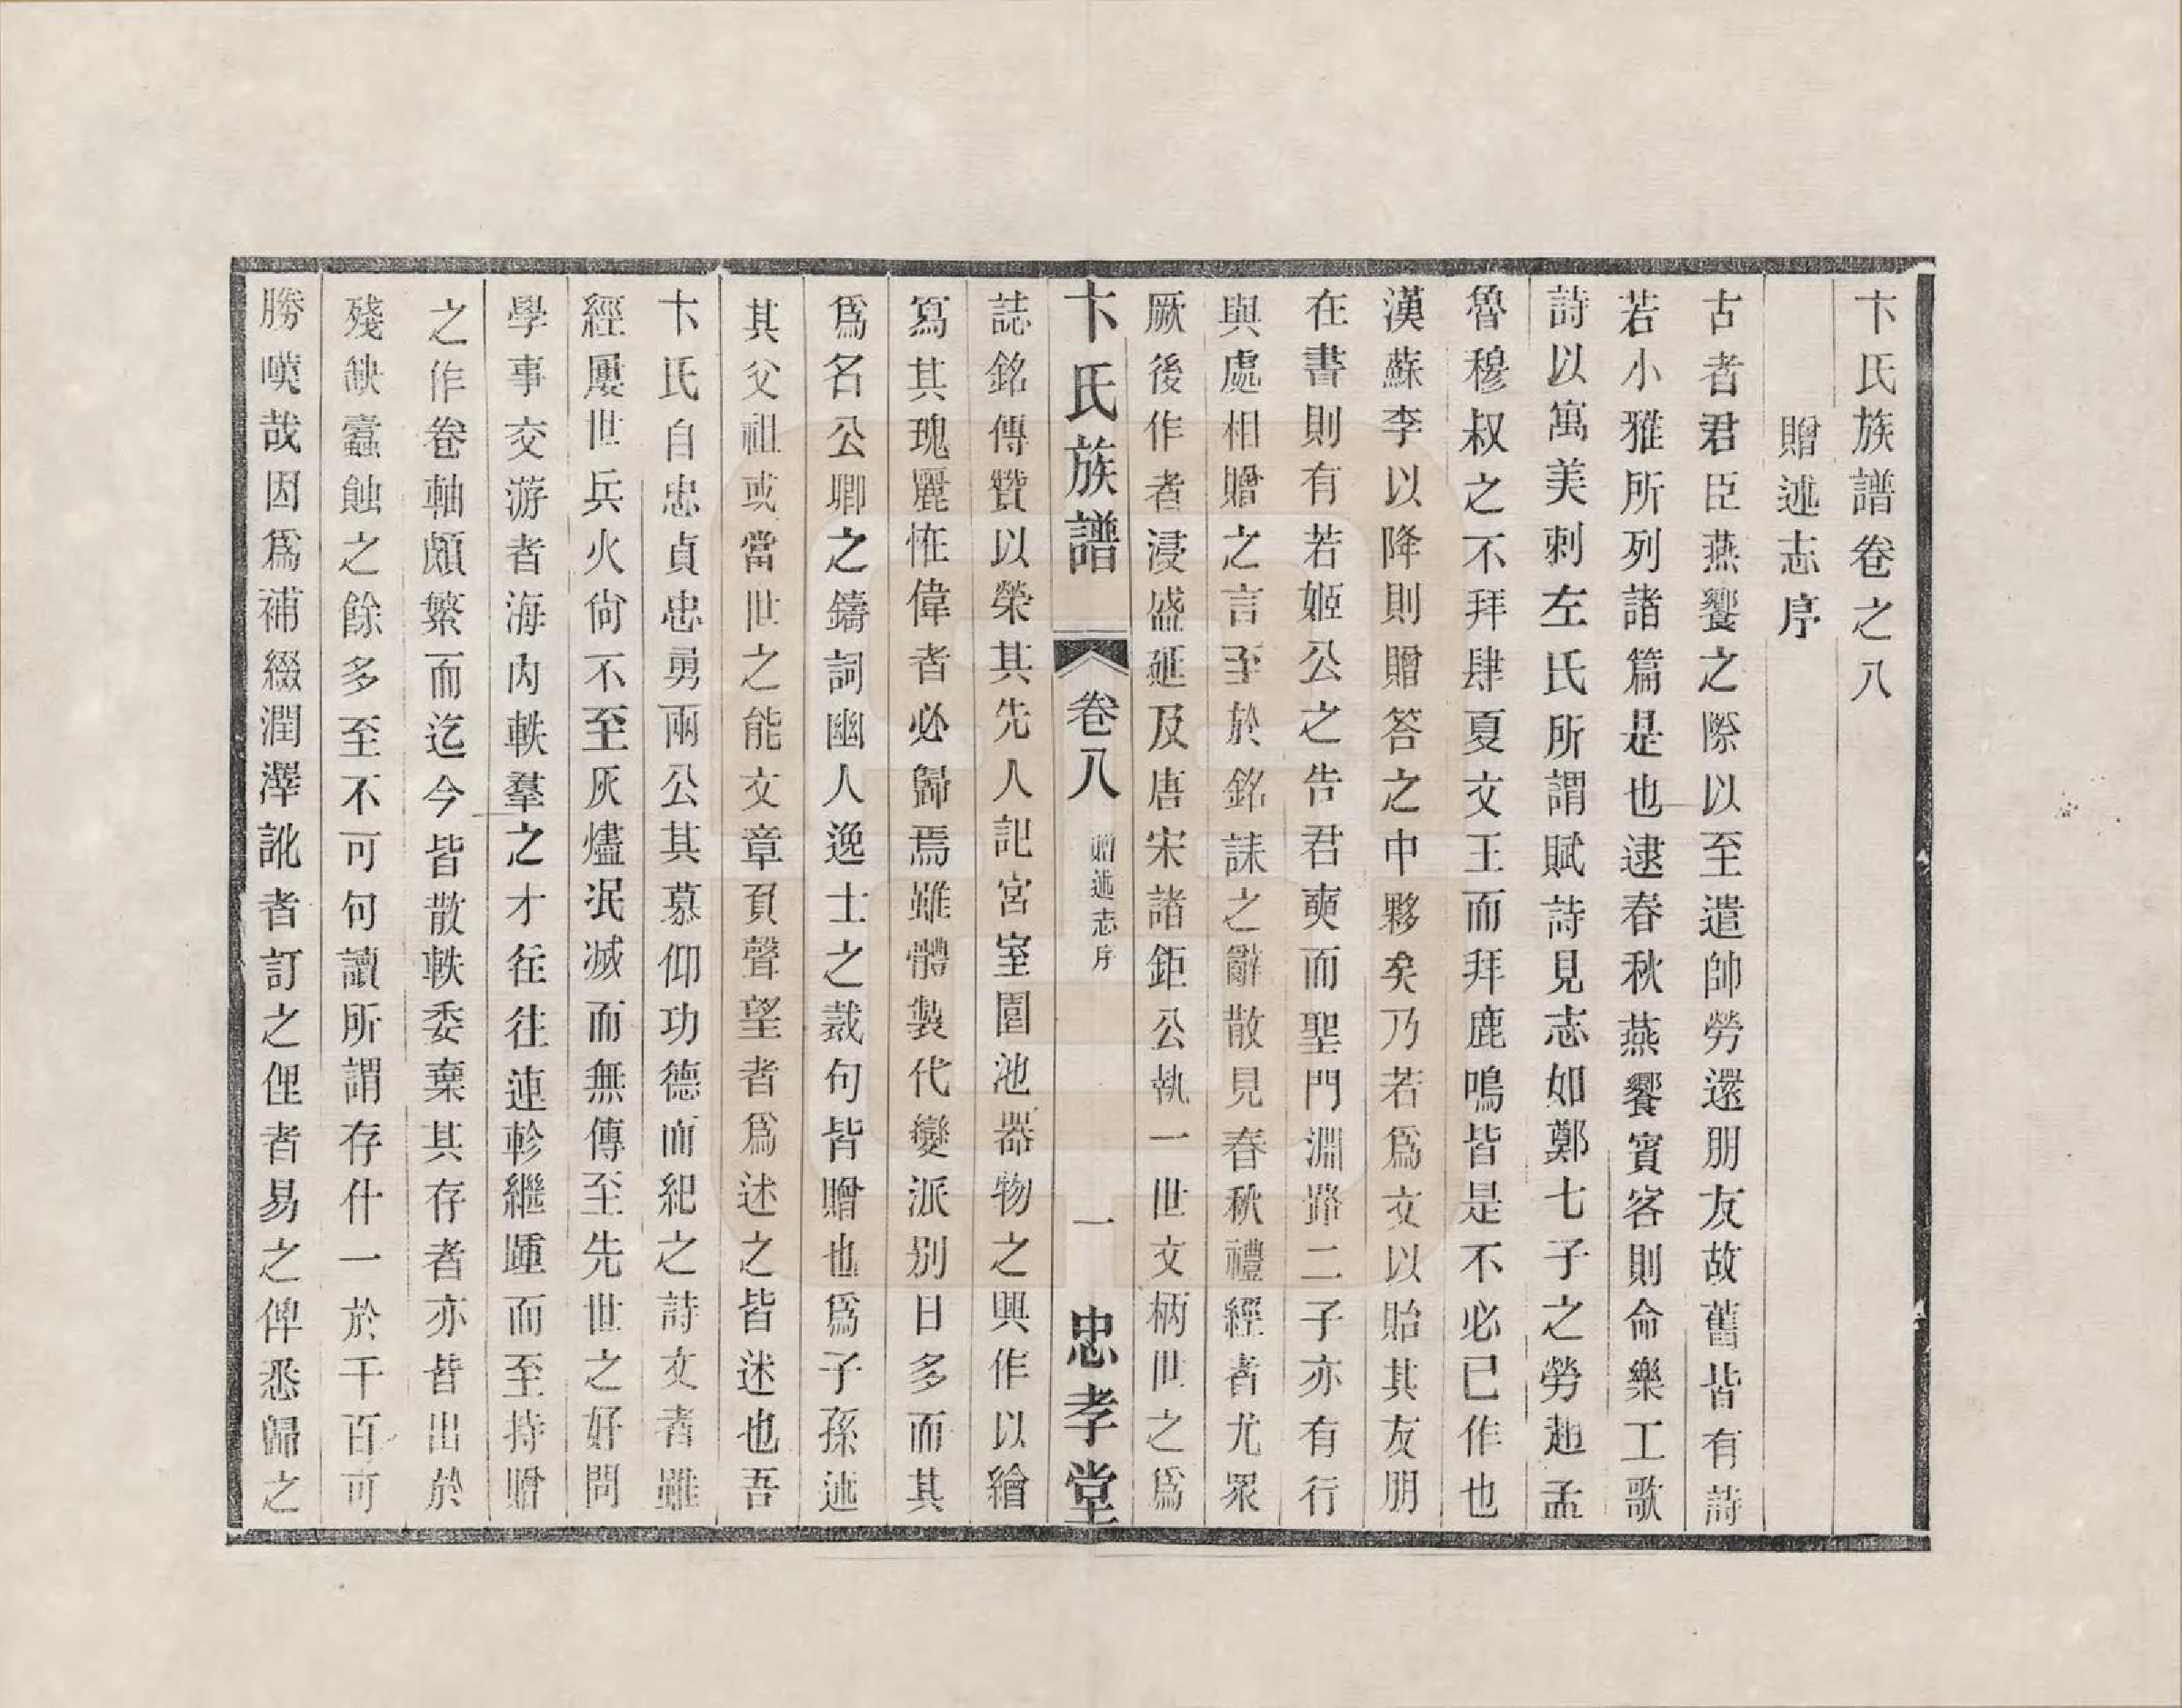 卞氏族譜卷之八
贈述志序
古者君臣燕饗之際以至遣帥勞還朋友故舊皆有詩
若小雅所列諸篇是也逮春秋燕饗賓客則命樂工歌
詩以寓美刺左氏所謂賦詩見志如鄭七子之勞趙孟
魯穆叔之不拜肆夏文王而拜鹿鳴皆是不必已作也
漢蘇李以降則贈答之中夥矣乃若爲文以貽其友朋
在書則有若姬公之告君奭而聖門淵路二子亦有行
與處相贈之言至於銘誄之辭散見春秋禮經者尤眾
厥後作者浸盛延及唐宋諸鉅公執一世文柄世之爲
卞氏族譜 卷八 贈述志序 一 忠孝堂
誌銘傳贊以榮其先人記宮室園池器物之興作以繪
寫其瑰麗恠偉者必歸焉雖體製代變派別日多而其
爲名公卿之鑄詞幽人逸士之裁句皆贈也爲子孫述
其父祖或當世之能文章負聲望者爲述之皆述也吾
卞氏自忠貞忠勇兩公其慕仰功德而紀之詩文者雖
經屢世兵火尙不至灰燼泯滅而無傳至先世之好問
學事交游者海內軼羣之才徃徃連軫繼踵而至持贈
之作卷軸頗繁而迄今皆散軼委棄其存者亦皆出於
殘缺蠹蝕之餘多至不可句讀所謂存什一於千百可
勝嘆哉因爲補綴潤澤訛者訂之俚者易之俾悉歸之